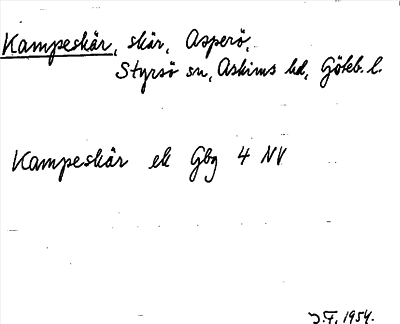 Kampeskär, skär, Asperö,
Styrsö sn, Askims hd, Göteb. l.
Kampeskär ek Gbg 4 NV
J.F. 1954.